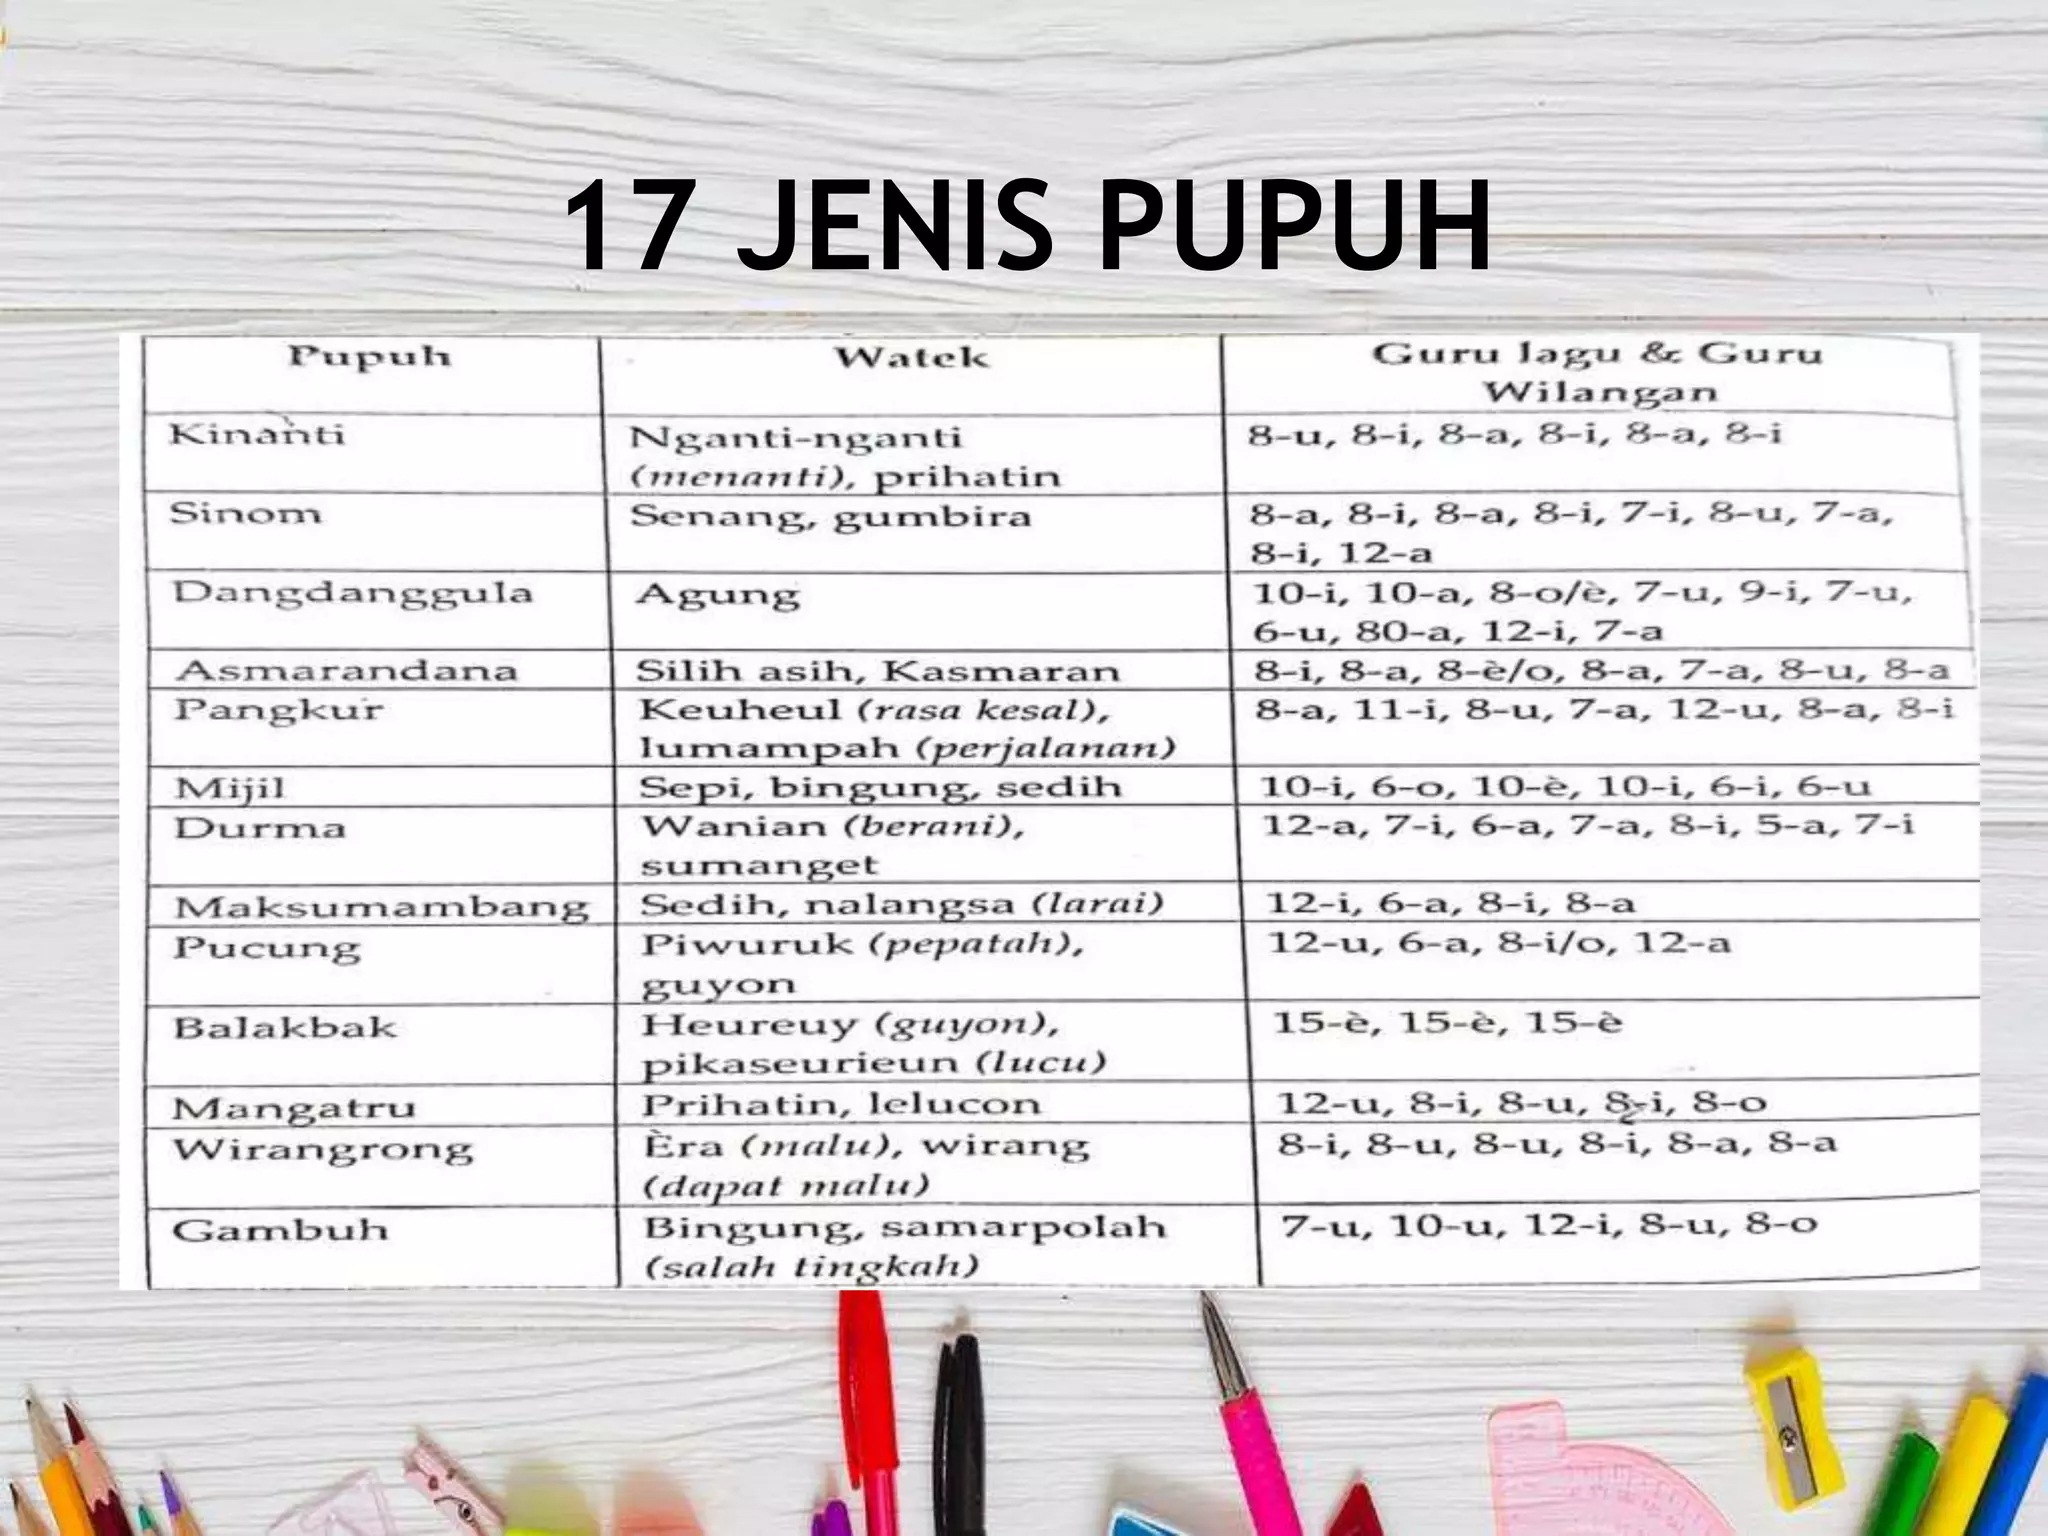 17 JENIS PUPUH
Pupuh Watek Guru lagu & Guru
Wilangan
Kinanti Nganti-nganti 8-u, 8-i, 8-a, 8-i, 8-a, 8-i
(menanti), prihatin
Sinom Senang, gumbira 8-a, 8-i, 8-a, 8-i, 7-i, 8-u, 7-a,
8-i, 12-a
Dangdanggula Agung 10-i, 10-a, 8-o/è, 7-u, 9-i, 7-u,
6-u, 80-a, 12-i, 7-a
Asmarandana Silih asih, Kasmaran 8-i, 8-a, 8-è/o, 8-a, 7-a, 8-u, 8-a
Pangkur Keuheul (rasa kesal), 8-a, 11-i, 8-u, 7-a, 12-u, 8-a, 8-i
lumampah (perjalanan)
Mijil Sepi, bingung, sedih 10-i, 6-o, 10-è, 10-i, 6-i, 6-u
Durma Wanian (berani), 12-a, 7-i, 6-a, 7-a, 8-i, 5-a, 7-i
sumanget
Maksumambang Sedih, nalangsa (larai) 12-i, 6-a, 8-i, 8-a
Pucung Piwuruk (pepatah), 12-u, 6-a, 8-i/o, 12-a
guyon
Balakbak Heureuy (guyon), 15-è, 15-è, 15-è
pikaseurieun (lucu)
Mangatru Prihatin, lelucon 12-u, 8-i, 8-u, 8-i, 8-o
Wirangrong Èra (malu), wirang 8-i, 8-u, 8-u, 8-i, 8-a, 8-a
(dapat malu)
Gambuh Bingung, samarpolah 7-u, 10-u, 12-i, 8-u, 8-o
(salah tingkah)